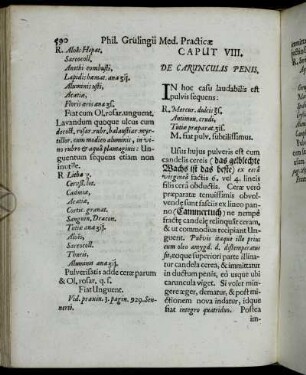 590 Phil. Grülingii Med. Practicæ
R. Aloës Hepat.
Sarcocoll.
Antibi combusti,
Lapidis hæmat. ana ʒij.
Aluminis usti,
Acatiæ,
Floris æris ana ʒß.
Fiat cum Ol. rosar. unguent.
Lavandum quoque ulcus cum
decoct. rosar. rubr. balaust. cor myr-
tillor. cum modico aluminis, in vi-
no rubro & aquâ plantaginis: Un-
guentum sequens etiam non
inutile.
R Litharg.
Ceruss. lot.
Cadmiæ,
Acatiæ,
Cortic. granat.
Sanguin. Dracon.
Tutiæ ana ʒij.
Aloës,
Sarcocoll.
Thuris,
Aluminis ana ʒj.
Pulverisatis adde ceræ parum
& Ol. rosar. q. s.
Fiat Unguent.
Vid. pravin. 3. pagin. 929. Sen-
nerti.
CAPUT VIII.
DE CARUNCULIS PENIS.
IN hoc casu laudabilis est
pulvis sequens:
R. Mercur. dulcis ʒß.
Antimon. crudi,
Tutiæ præparat. ʒiß.
M. fiat pulv. subtilissimus.
Usus hujus pulveris est cum
candelis cereis (das gebleichte
Wachs ist das beste) ex cerâ
factis 6. vel 4. Indi-
filis cerâ obductis. Ceræ verò
præparatæ tenuissimis obvol-
vendi sunt subtiliore lineo pan-
no (Cammertuch) ne nempe
fracto candelæ relinquat ceram, &
ut commodius recipiant Un-
guent. Pulvis itaque ille prius
cum oleo amygd. d. distemperatur
superiore aquæ parte illini-
tur candela cerea, & immittitur
in ductum penis, eò usque ubi
caruncula viget. Si velit min-
gere æger, dematur, & post mi-
ctionem nova indatur, idque
fiat integro quatriduo. Postea
im-